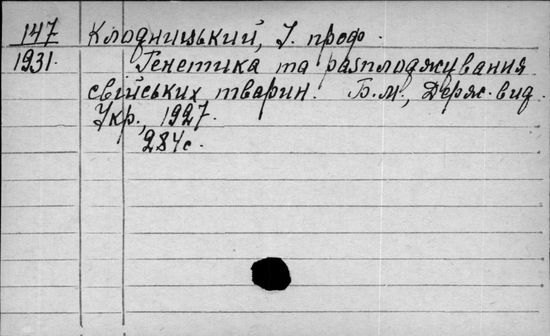 147 Клодницький, І. проф.
1931. Генетика та разплоджування
свійських тварин. Б.м., Держ. вид.
Укр., 1927.
284с.